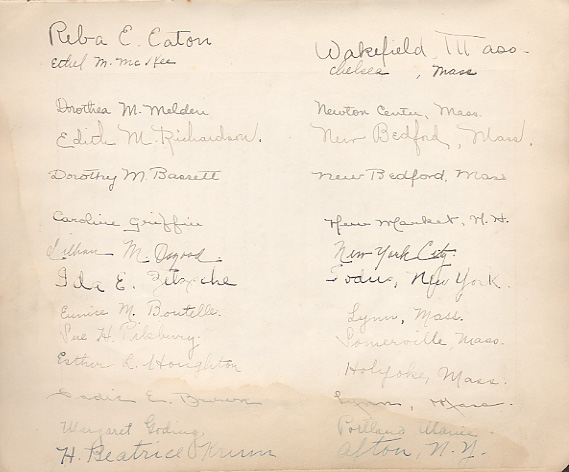 Reba E. Eaton Wakefield, Mass.
Ethel M. McKee Chelsea, Mass
Dorothea M. Melden Newton Center, Mass.
Edith M. Richardson. New Bedford, Mass.
Dorothy M. Bassett New Bedford, Mass
Caroline Griffin New Market, N.H.
Lillian M. Osgood. New York City.
Ida E. Sodus, New York.
Eunice M. Boutelle. Lynn, Mass.
Sue H. Pilsbury. Somerville Mass.
Esther R. Houghton Holyoke, Mass.
Sadie E. Brown Lynn, Mass.
Margaret Goding. Portland Maine.
H. Beatrice Krum Afton, N.Y.